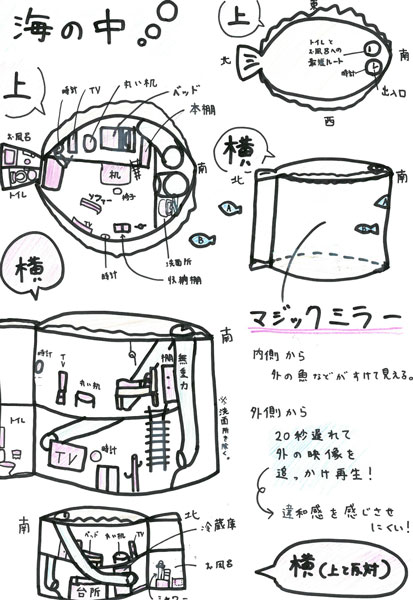 海の中
上
時計
TV
丸い机
ベッド
本棚
お風呂
トイレ
机
椅子
ソファー
TV
時計
収納棚
洗面所
南
A
B
上
東
北
南
西
トイレと
お風呂への
最短ルート
時計
出入口
横
北
南
A
B
マジックミラー
内側から
外の魚などがすけて見える。
外側から
20秒遅れて
外の映像を
追っかけ再生!
違和感を感じさせ
にくい!
横
南
時計
TV
丸い机
棚
無重力
※洗面所を除く。
トイレ
TV
時計
南
北
ベッド
丸い机
TV
冷蔵庫
お風呂
台所
シャワー
横(上と反対)